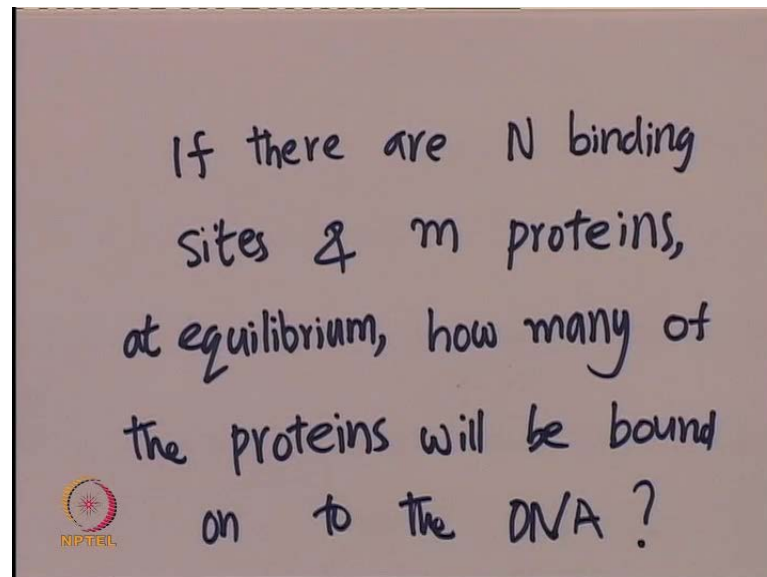 If there are N binding
sites & m proteins,
at equilibrium, how many of
the proteins will be bound
on to the DNA?
NPTEL